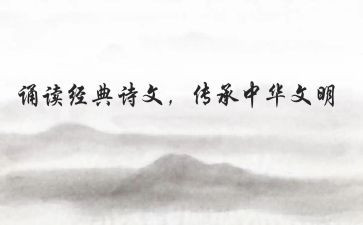 诵读经典诗文，传承中华文明